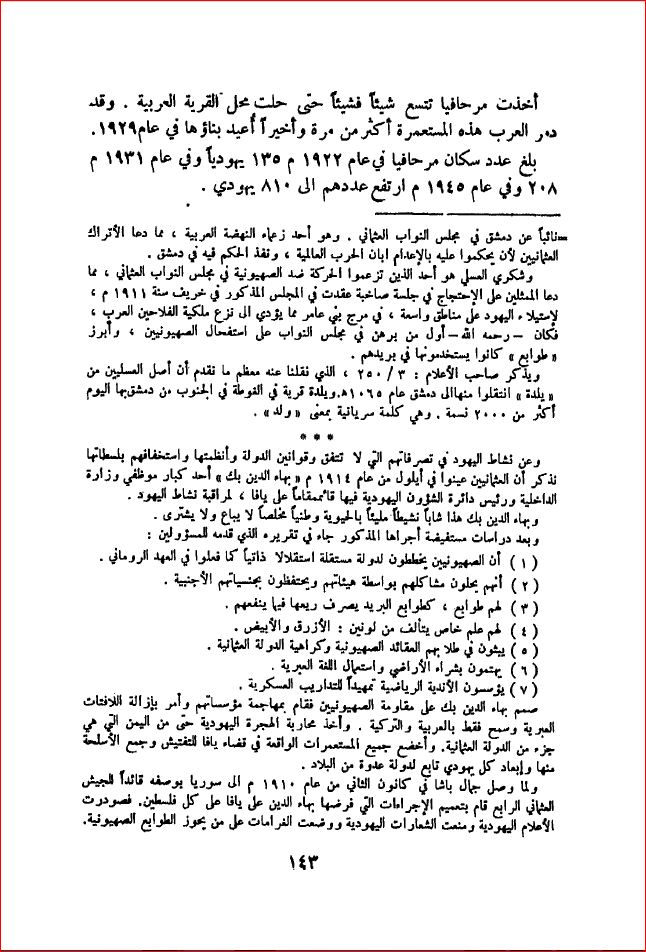 أخذت مرحافيا تتسع شيئاً فشيئاً حتى حلت محل القرية العربية . وقد
دمر العرب هذه المستعمرة أكثر من مرة وأخيراً أُعيد بناؤها في عام ١٩٢٩.
بلغ عدد سكان مرحافيا في عام ١٩٢٢ م ١٣٥ يهودياً وفي عام ١٩٣١ م
٢٠٨ وفي عام ١٩٤٥ م ارتفع عددهم الى ٨١٠ يهودي .
=نائباً عن دمشق في مجلس النواب العثماني . وهو أحد زعماء النهضة العربية ، مما دعا الأتراك
العثمانيين لأن يحكموا عليه بالإعدام ابان الحرب العالمية ، ونفذ الحكم فيه في دمشق .
وشكري العسلي هو أحد الذين تزعموا الحركة ضد الصهيونية في مجلس النواب العثماني ، مما
دعا الممثلين على الإحتجاج في جلسة صاخبة عقدت في المجلس المذكور في خريف سنة ١٩١١ م ،
لإستيلاء اليهود على مناطق واسعة ، في مرج بني عامر مما يؤدي الى نزع ملكية الفلاحين العرب ،
فكان – رحمه الله – أول من برهن في مجلس النواب على استفحال الصهيونيين ، وأبرز
« طوابع » كانوا يستخدمونها في بريدهم .
ويذكر صاحب الأعلام : ٣ / ٢٥٠ ، الذي نقلنا عنه معظم ما تقدم أن أصل العسليين من
« يلدة » انتقلوا منها الى دمشق عام ١٠٦٥ه. ويلدة قرية في الغوطة في الجنوب من دمشق بها اليوم
أكثر من ٢٠٠٠ نسمة . وهي كلمة سريانية بمعنى « ولد » .
* * *
وعن نشاط اليهود في تصرفاتهم التي لا تتفق وقوانين الدولة وأنظمتها واستخفافهم بلسطاتها
نذكر أن العثمانيين عينوا في أيلول من عام ١٩١٤ م « بهاء الدين بك » أحد كبار موظفي وزارة
الداخلية ورئيس دائرة الشؤون اليهودية فيها قائمقاماً على يافا ، لمراقبة نشاط اليهود .
وبهاء الدين بك هذا شاباً نشيطاً مليئاً بالحيوية وطنياً مخلصاً لا يباع ولا يشترى .
وبعد دراسات مستفيضة أجراها المذكور جاء في تقريره الذي قدمه للمسؤولين :
( ١ ) أن الصهيونيين يخططون لدولة مستقلة استقلالا ذاتياً كما فعلوا في العهد الروماني .
( ٢ ) أنهم يحلون مشاكلهم بواسطة هيئاتهم ويحتفظون بجنسياتهم الأجنبية .
( ٣ ) لهم طوابع ، كطوابع البريد يصرف ريعها فيها ينفعهم .
( ٤ ) لهم علم خاص يتألف من لونين : الأزرق والأبيض .
( ٥ ) يبثون في طلابهم العقائد الصهيونية وكراهية الدولة العثمانية .
( ٦ ) يهتمون بشراء الأراضي واستعمال اللغة العبرية .
( ٧ ) يؤسسون الأندية الرياضية تمهيداً للتداريب العسكرية .
صمم بهاء الدين بك على مقاومة الصهيونيين فقام بمهاجمة مؤسساتهم وأمر بإزالة اللافتات
العبرية وسمح فقط بالعربية والتركية . وأخذ محاربة الهجرة اليهودية حتى من اليمن التي هي
جزء من الدولة العثمانية. وأخضع جميع المستعمرات الواقعة في قضاء يافا للتفتيش وجمع الأسلحة
منها وإبعاد كل يهودي تابع لدولة عدوة من البلاد .
ولما وصل جمال باشا في كانون الثاني من عام ١٩١٠ م الى سوريا بوصفه قائداً للجيش
العثماني الرابع قام بتعميم الإجراءات التي فرضها بهاء الدين على يافا على كل فلسطين. فصودرت
الأعلام اليهودية ومنعت الشعارات اليهودية ووضعت الغرامات على من يحوز الطوابع الصهيونية.
١٤٣